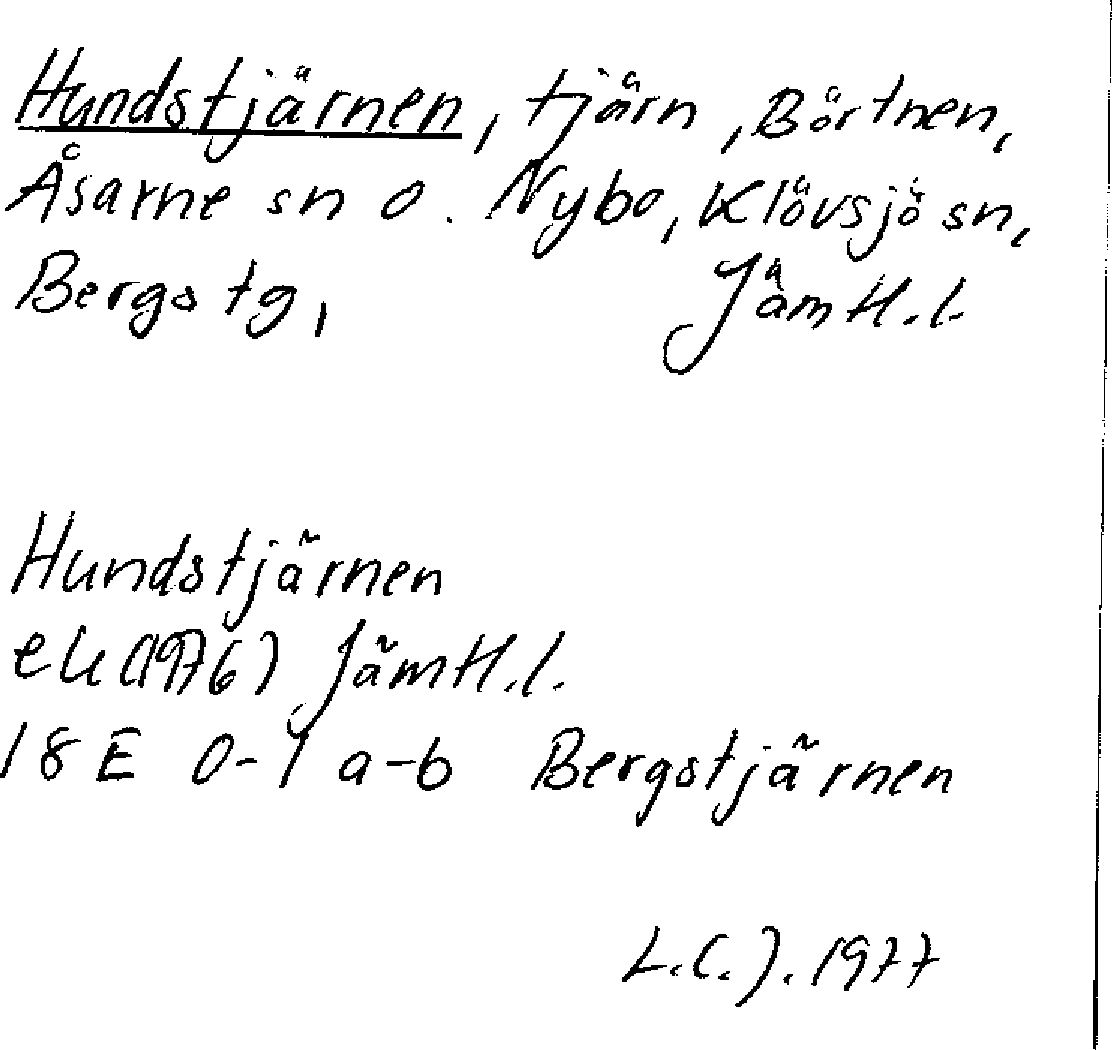 Hundstjärnen, tjärn, Börtnen,
Åsarne sn o. Nybo, Klövsjö sn,
Bergs tg, Jämtl.l.
Hundstjärnen
ek (1976) Jämtl.l.
18 E 0-1 a-b Bergstjärnen
L.C.J. 1977